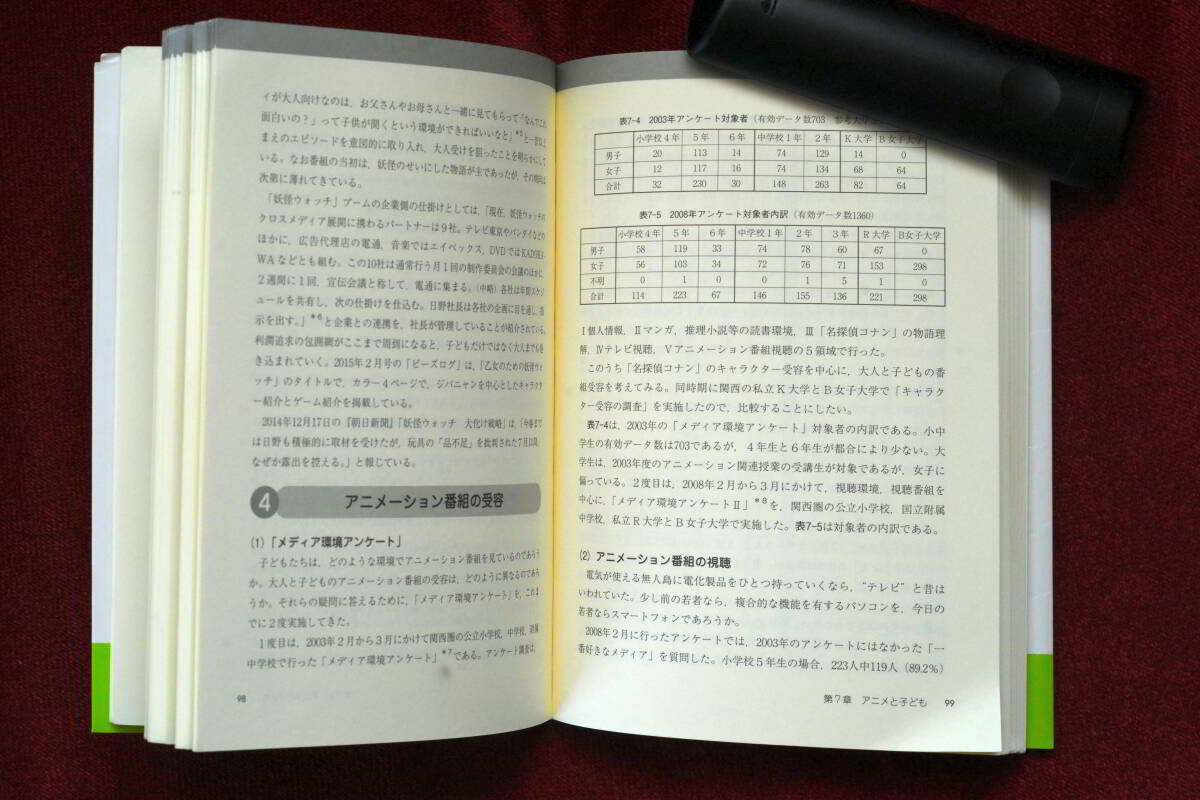 ィが大人向けなのは，お父さんやお母さんと一緒に見てもらって「なんでこれ
面白いの？」って子供が聞くという環境ができればいいなと」*5と一世以上
まえのエピソードを意図的に取り入れ，大人受けを狙ったことを明らかにして
いる。なお番組の当初は，妖怪のせいにした物語が主であったが，その傾向は
次第に薄れてきている。
「妖怪ウォッチ」ブームの企業側の仕掛けとしては，「現在，妖怪ウォッチの
クロスメディア展開に携わるパートナーは９社。テレビ東京やバンダイなどの
ほかに，広告代理店の電通，音楽ではエイベックス，DVDではKADOKA-
WAなどとも組む。この10社は通常行う月１回の制作委員会の会議のほかに
２週間に１回，宣伝会議と称して，電通に集まる。（中略）各社は年間スケジ
ュールを共有し，次の仕掛けを仕込む。日野社長は各社の企画に目を通し，指
示を出す。」*6と企業との連携を，社長が管理していることが紹介されている。
利潤追求の包囲網がここまで周到になると，子どもだけではなく大人までも巻
き込まれていく。2015年２月号の『ビーズログ』は，「乙女のための妖怪ウォ
ッチ」のタイトルで，カラー４ページで，ジバニャンを中心としたキャラクタ
ー紹介とゲーム紹介を掲載している。
2014年12月17日の『朝日新聞』「妖怪ウォッチ　大化け戦略」は，「今春まで
は日野も積極的に取材を受けたが，玩具の「品不足」を批判された７月以降，
なぜか露出を控える。」と報じている。
4 アニメーション番組の受容
(1)「メディア環境アンケート」
子どもたちは，どのような環境でアニメーション番組を見ているのであろう
か。大人と子どものアニメーション番組の受容は，どのように異なるのであろ
うか。それらの疑問に答えるために，「メディア環境アンケート」を，これま
でに２度実施してきた。
１度目は，2003年２月から３月にかけて関西圏の公立小学校，中学校，附属
中学校で行った「メディア環境アンケート」*7である。アンケート調査は，
98
表7-4　2003年アンケート対象者（有効データ数703　参考大学
小学校４年 ５年 ６年 中学校１年 ２年 K大学 B女子大学
男子 20 113 14 74 129 14 0
女子 12 117 16 74 134 68 64
合計 32 230 30 148 263 82 64
表7-5　2008年アンケート対象者内訳（有効データ数1360）
小学校４年 ５年 ６年 中学校１年 ２年 ３年 R大学 B女子大学
男子 58 119 33 74 78 60 67 0
女子 56 103 34 72 76 71 153 298
不明 0 1 0 0 1 5 1 0
合計 114 223 67 146 155 136 221 298
Ⅰ個人情報，Ⅱマンガ，推理小説等の読書環境，Ⅲ「名探偵コナン」の物語理
解，Ⅳテレビ視聴，Ⅴアニメーション番組視聴の５領域で行った。
このうち「名探偵コナン」のキャラクター受容を中心に，大人と子どもの番
組受容を考えてみる。同時期に関西の私立K大学とB女子大学で「キャラク
ター受容の調査」を実施したので，比較することにしたい。
表7-4は，2003年の「メディア環境アンケート」対象者の内訳である。小中
学生の有効データ数は703であるが，４年生と６年生が都合により少ない。大
学生は，2003年度のアニメーション関連授業の受講生が対象であるが，女子に
偏っている。２度目は，2008年２月から３月にかけて，視聴環境，視聴番組を
中心に，「メディア環境アンケートⅡ」*8を，関西圏の公立小学校，国立附属
中学校，私立R大学とB女子大学で実施した。表7-5は対象者の内訳である。
(2) アニメーション番組の視聴
電気が使える無人島に電化製品をひとつ持っていくなら，“テレビ”と昔は
いわれていた。少し前の若者なら，複合的な機能を有するパソコンを，今日の
若者ならスマートフォンであろうか。
2008年２月に行ったアンケートでは，2003年のアンケートにはなかった「一
番好きなメディア」を質問した。小学校５年生の場合，223人中119人（89.2%）
第７章　アニメと子ども　99